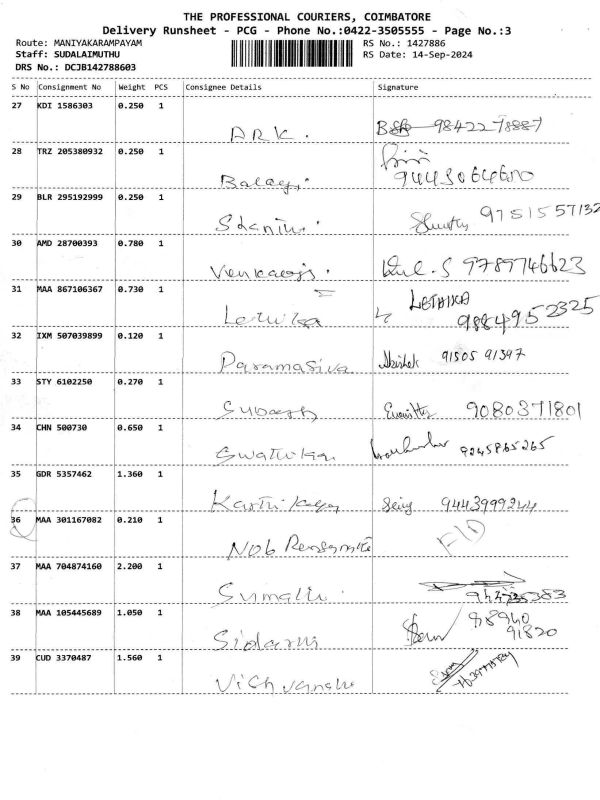 THE PROFESSIONAL COURIERS, COIMBATORE
Delivery Runsheet - PCG - Phone No.:0422-3505555 - Page No.:3
Route: MANIYAKARAMPAYAM RS No.: 1427886
Staff: SUDALAIMUTHU RS Date: 14-Sep-2024
DRS No.: DCJB142788603
S No Consignment No Weight PCS Consignee Details Signature
27 KDI 1586303 0.250 1
ARK. 9842278887
28 TRZ 205380932 0.250 1
Balaji 9443064600
29 BLR 295192999 0.250 1
9751557132
30 AMD 28700393 0.780 1
9789746623
31 MAA 867106367 0.730 1
Lethika LETHIKA
9884952325
32 IXM 507039899 0.120 1
Paramasiva 91505 91397
33 STY 6102250 0.270 1
Subash 9080371801
34 CHN 500730 0.650 1
Swathika 9245865265
35 GDR 5357462 1.360 1
Karthikeya 9443999244
36 MAA 301167082 0.210 1
37 MAA 704874160 2.200 1
Sumathi
38 MAA 105445689 1.050 1
98940
91820
39 CUD 3370487 1.560 1